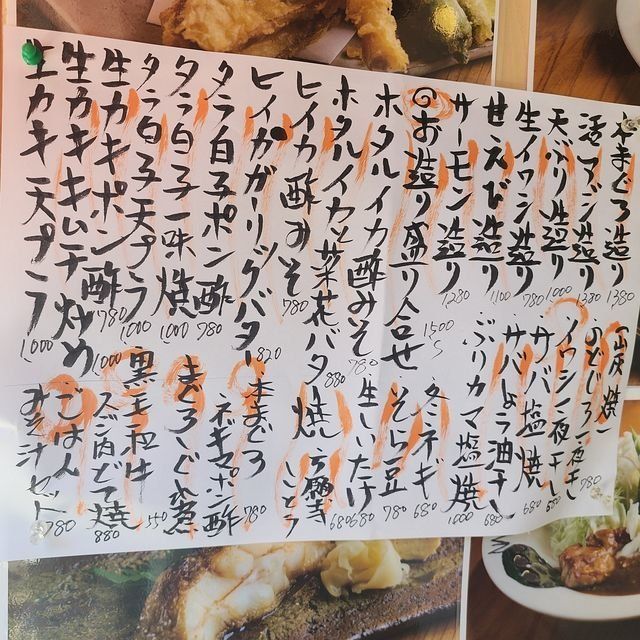 本まぐろ造り 1380
活アジ造り 1280
天ぶり造り 1000
生イワシ造り 780
甘えび造り 1100
サーモン造り 1280
のお造り盛り合せ 1500
ホタルイカ酢みそ 780
ホタルイカと菜花バター 880
ヒイカ酢みそ 780
ヒイカガーリックバター 820
タラ白子ポン酢 780
タラ白子一味焼 1000
タラ白子天プラ 1000
生カキポン酢 780
生カキキムチ炒め 1000
生カキ天プラ 1000
のどぐろ一夜干し 780
イワシ一夜干し
サバ塩焼 680
サバしょう油干し 680
ぶりカマ塩焼 1000
冬ネギ 680
そら豆 780
生しいたけ 680
万願寺ししとう 680
本まぐろ
ネギマポン酢 780
まぐろしぐれ煮 550
黒毛和牛
スジ肉どて焼 880
ごはん
みそ汁セット 780